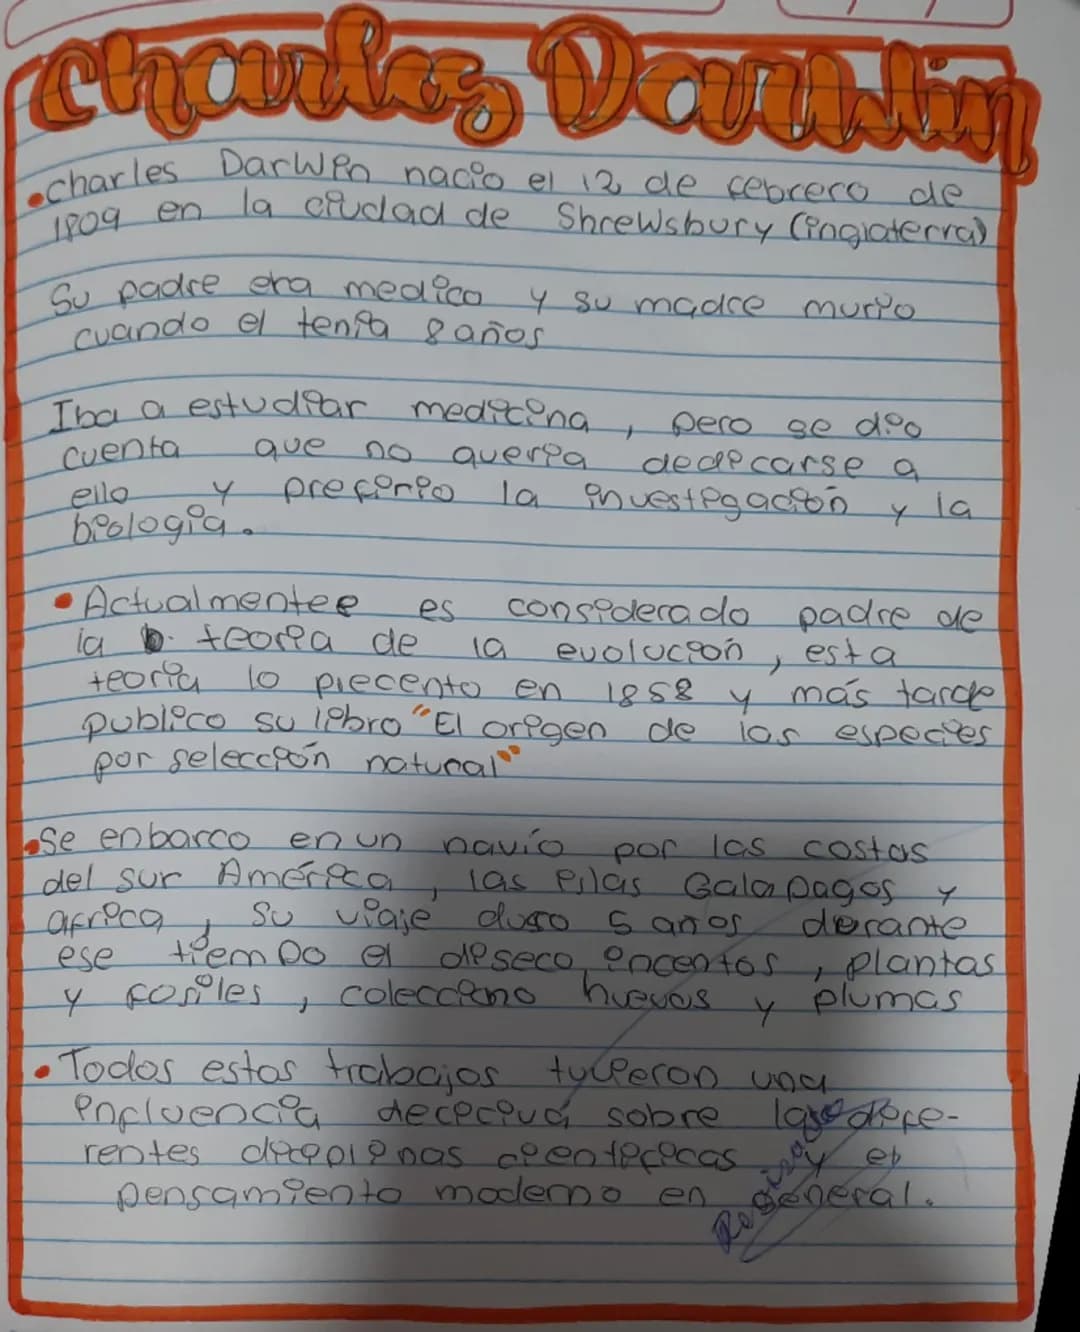 Charles Darwin
•charles Darwin nacio el 12 de febrero de
1809 en la ciudad de Shrewsbury (inglaterra)
Su padre era medico y su madre murio
cuando el tenia 8 años
Iba a estudiar medicina, pero se dio
cuenta que no queria dedicarse a
ello y prefirio la investigación y la
biologia.
•Actualmentee es considerado padre de
la teoria de la evolución, esta
teoria lo precento en 1858 y más tarde
publico su libro "El origen de las especies
por selección natural"
•Se enbarco en un navío por las costas
del sur América, las islas Galapagos y
africa, su viaje duro 5 años derante
ese tiempo el diseco incentos, plantas
y fosiles, colecciono huevos y plumas
•Todos estos trabajos tuvieron una
influencia dececiva sobre las dife-
rentes diciplinas cientificas y el
pensamiento moderno en general.
Revisado